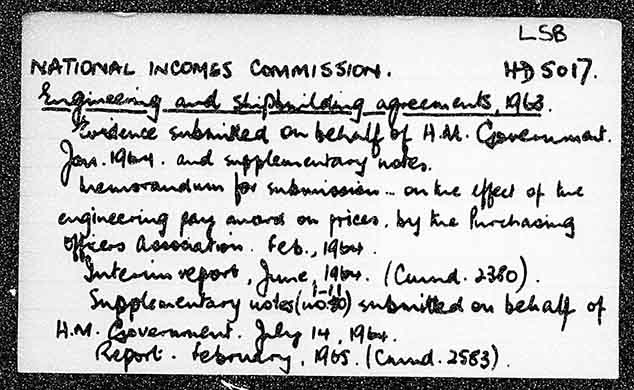 LSB
NATIONAL INCOMES COMMISSION. HD 5017.
Engineering and shipbuilding agreements, 1963.
Evidence submitted on behalf of H.M. Government.
Jan. 1964. and supplementary notes.
Memorandum for submission... on the effect of the
engineering pay award on prices, by the Purchasing
Officers Association. Feb., 1964.
Interim report, June, 1964. (Cmnd. 2380).
1-11
Supplementary notes (no. ) submitted on behalf of
H.M. Government. July 14, 1964.
Report. February, 1965. (Cmnd. 2583).